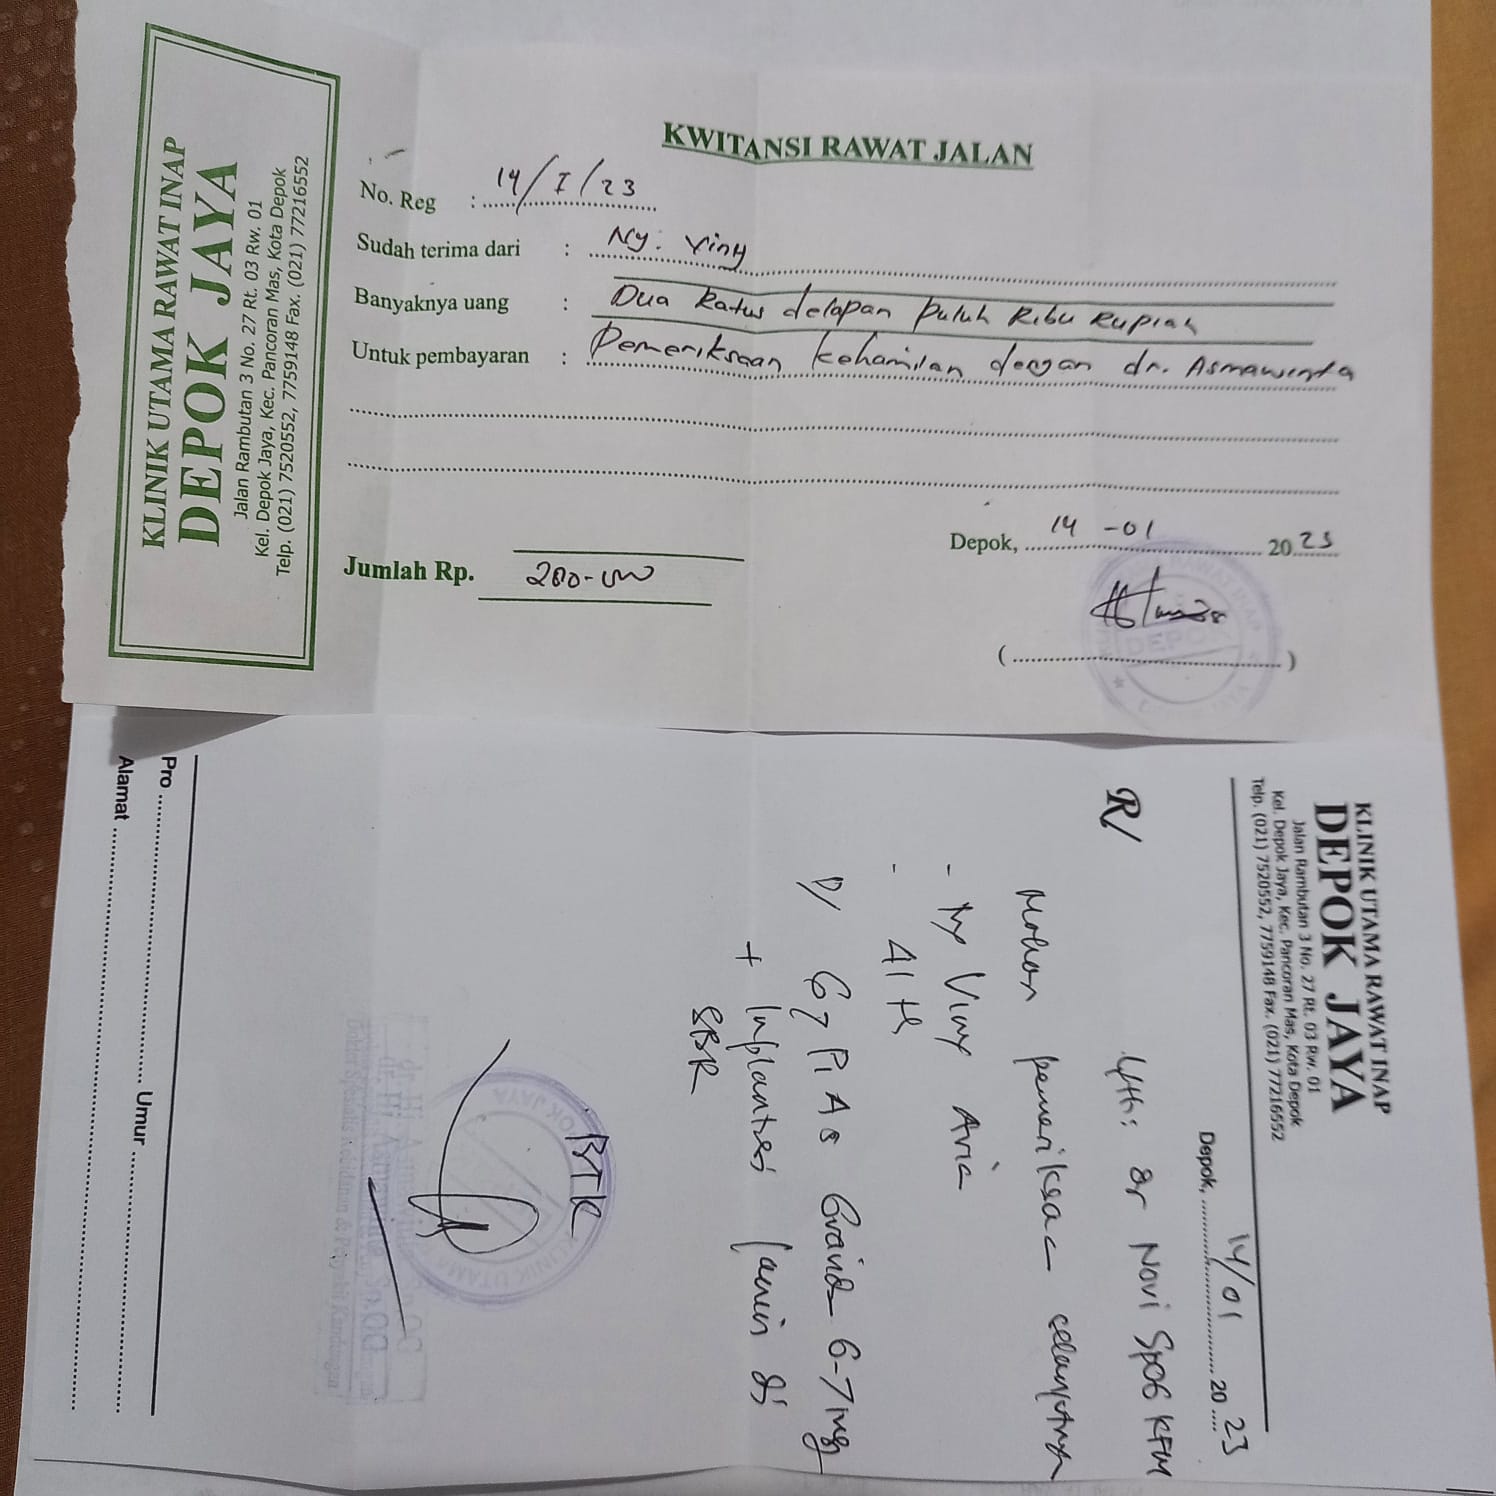 KLINIK UTAMA RAWAT INAP
DEPOK JAYA
Jalan Rambutan 3 No. 27 Rt. 03 Rw. 01
Kel. Depok Jaya, Kec. Pancoran Mas, Kota Depok
Telp. (021) 7520552, 7759148 Fax. (021) 77216552
KWITANSI RAWAT JALAN
No. Reg : 14/I/23
Sudah terima dari : Ny. Viny
Banyaknya uang : Dua Ratus delapan puluh Ribu Rupiah
Untuk pembayaran : Pemeriksaan kehamilan dengan dr. Asmawinta
Depok, 14 - 01 2023
Jumlah Rp.
( )
KLINIK UTAMA RAWAT INAP
DEPOK JAYA
Jalan Rambutan 3 No. 27 Rt. 03 Rw. 01
Kel. Depok Jaya, Kec. Pancoran Mas, Kota Depok
Telp. (021) 7520552, 7759148 Fax. (021) 77216552
Depok, 14/01 2023
R/
Yth: dr Novi SpOG KFM
Mohon pemeriksaan selanjutnya
- Viny Avia
- 41 th
D/ G7 P1 A Gravida 6-7 mg
+ Implantasi di
SBR
BTK
Pro Umur
Alamat